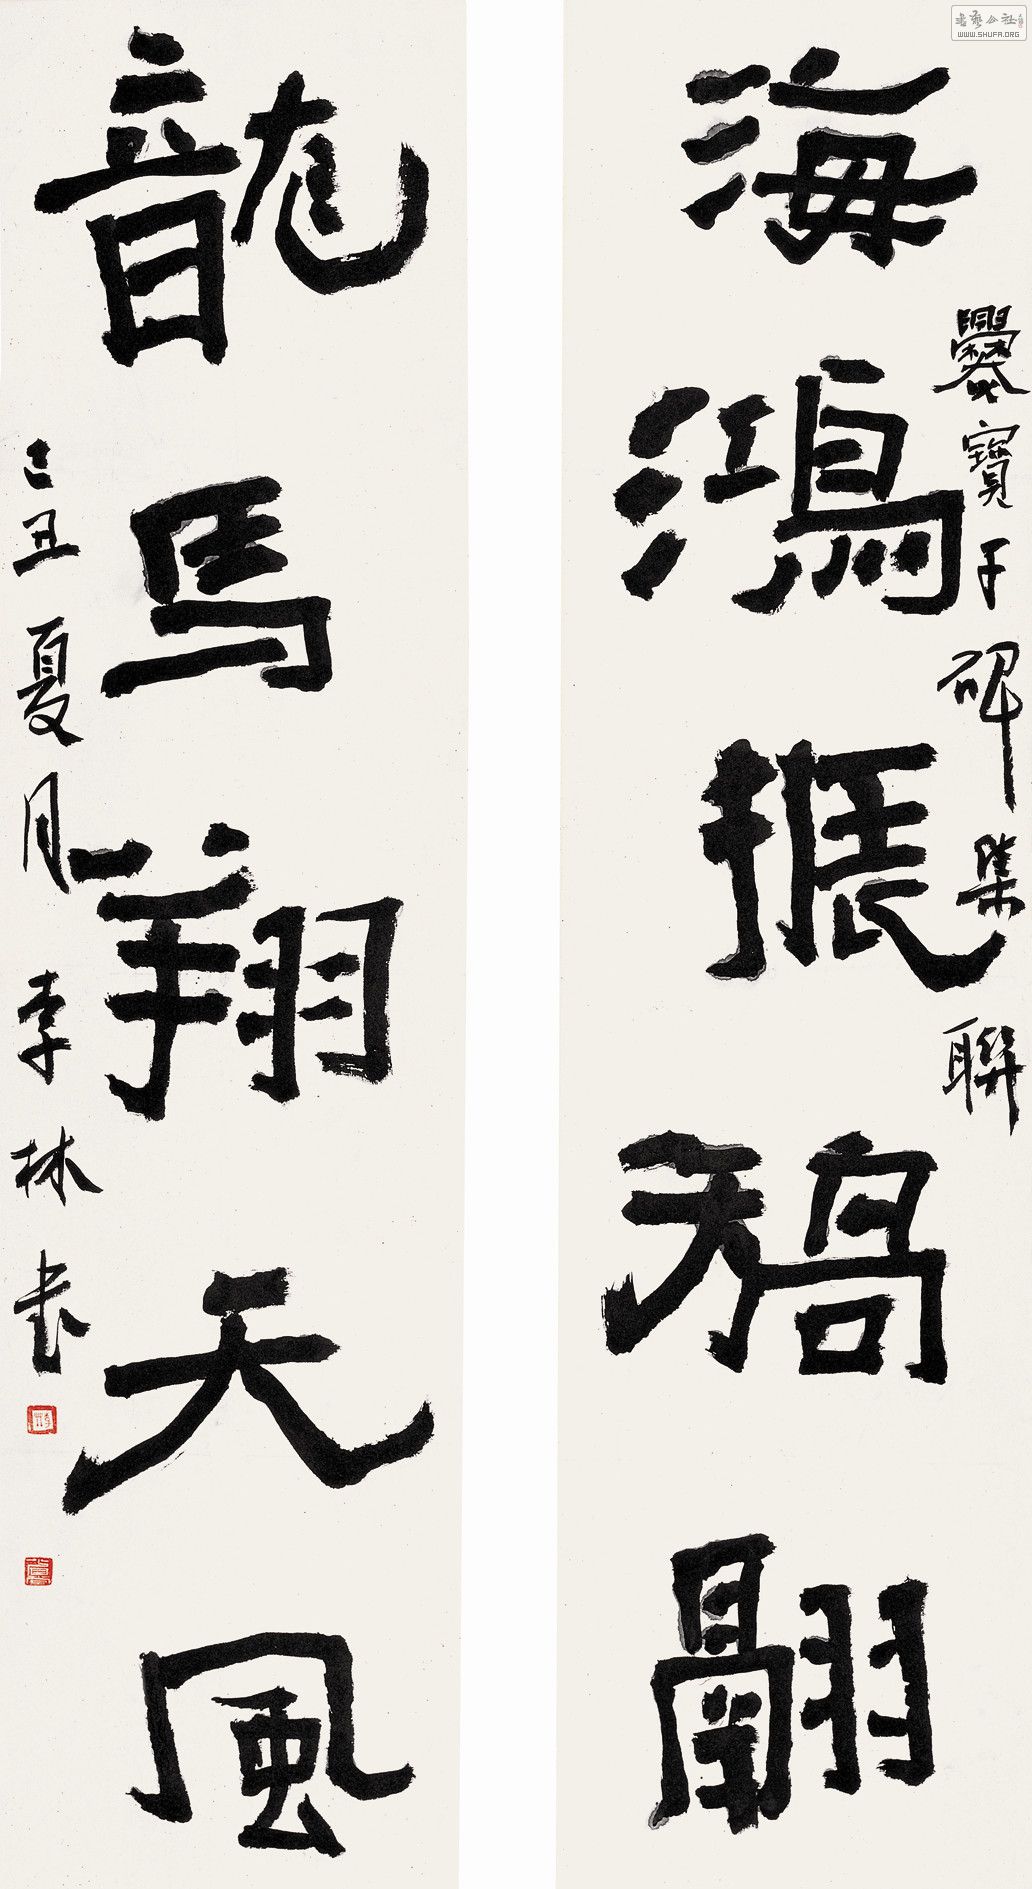 海鴻振矯翮
爨寶子碑集聯
龍馬翔天風
己丑夏月李林書
書藝公社
WWW.SHUFA.ORG